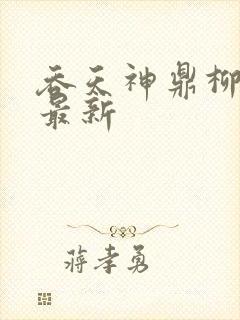 吞天神鼎柳
最新
蒋孝勇